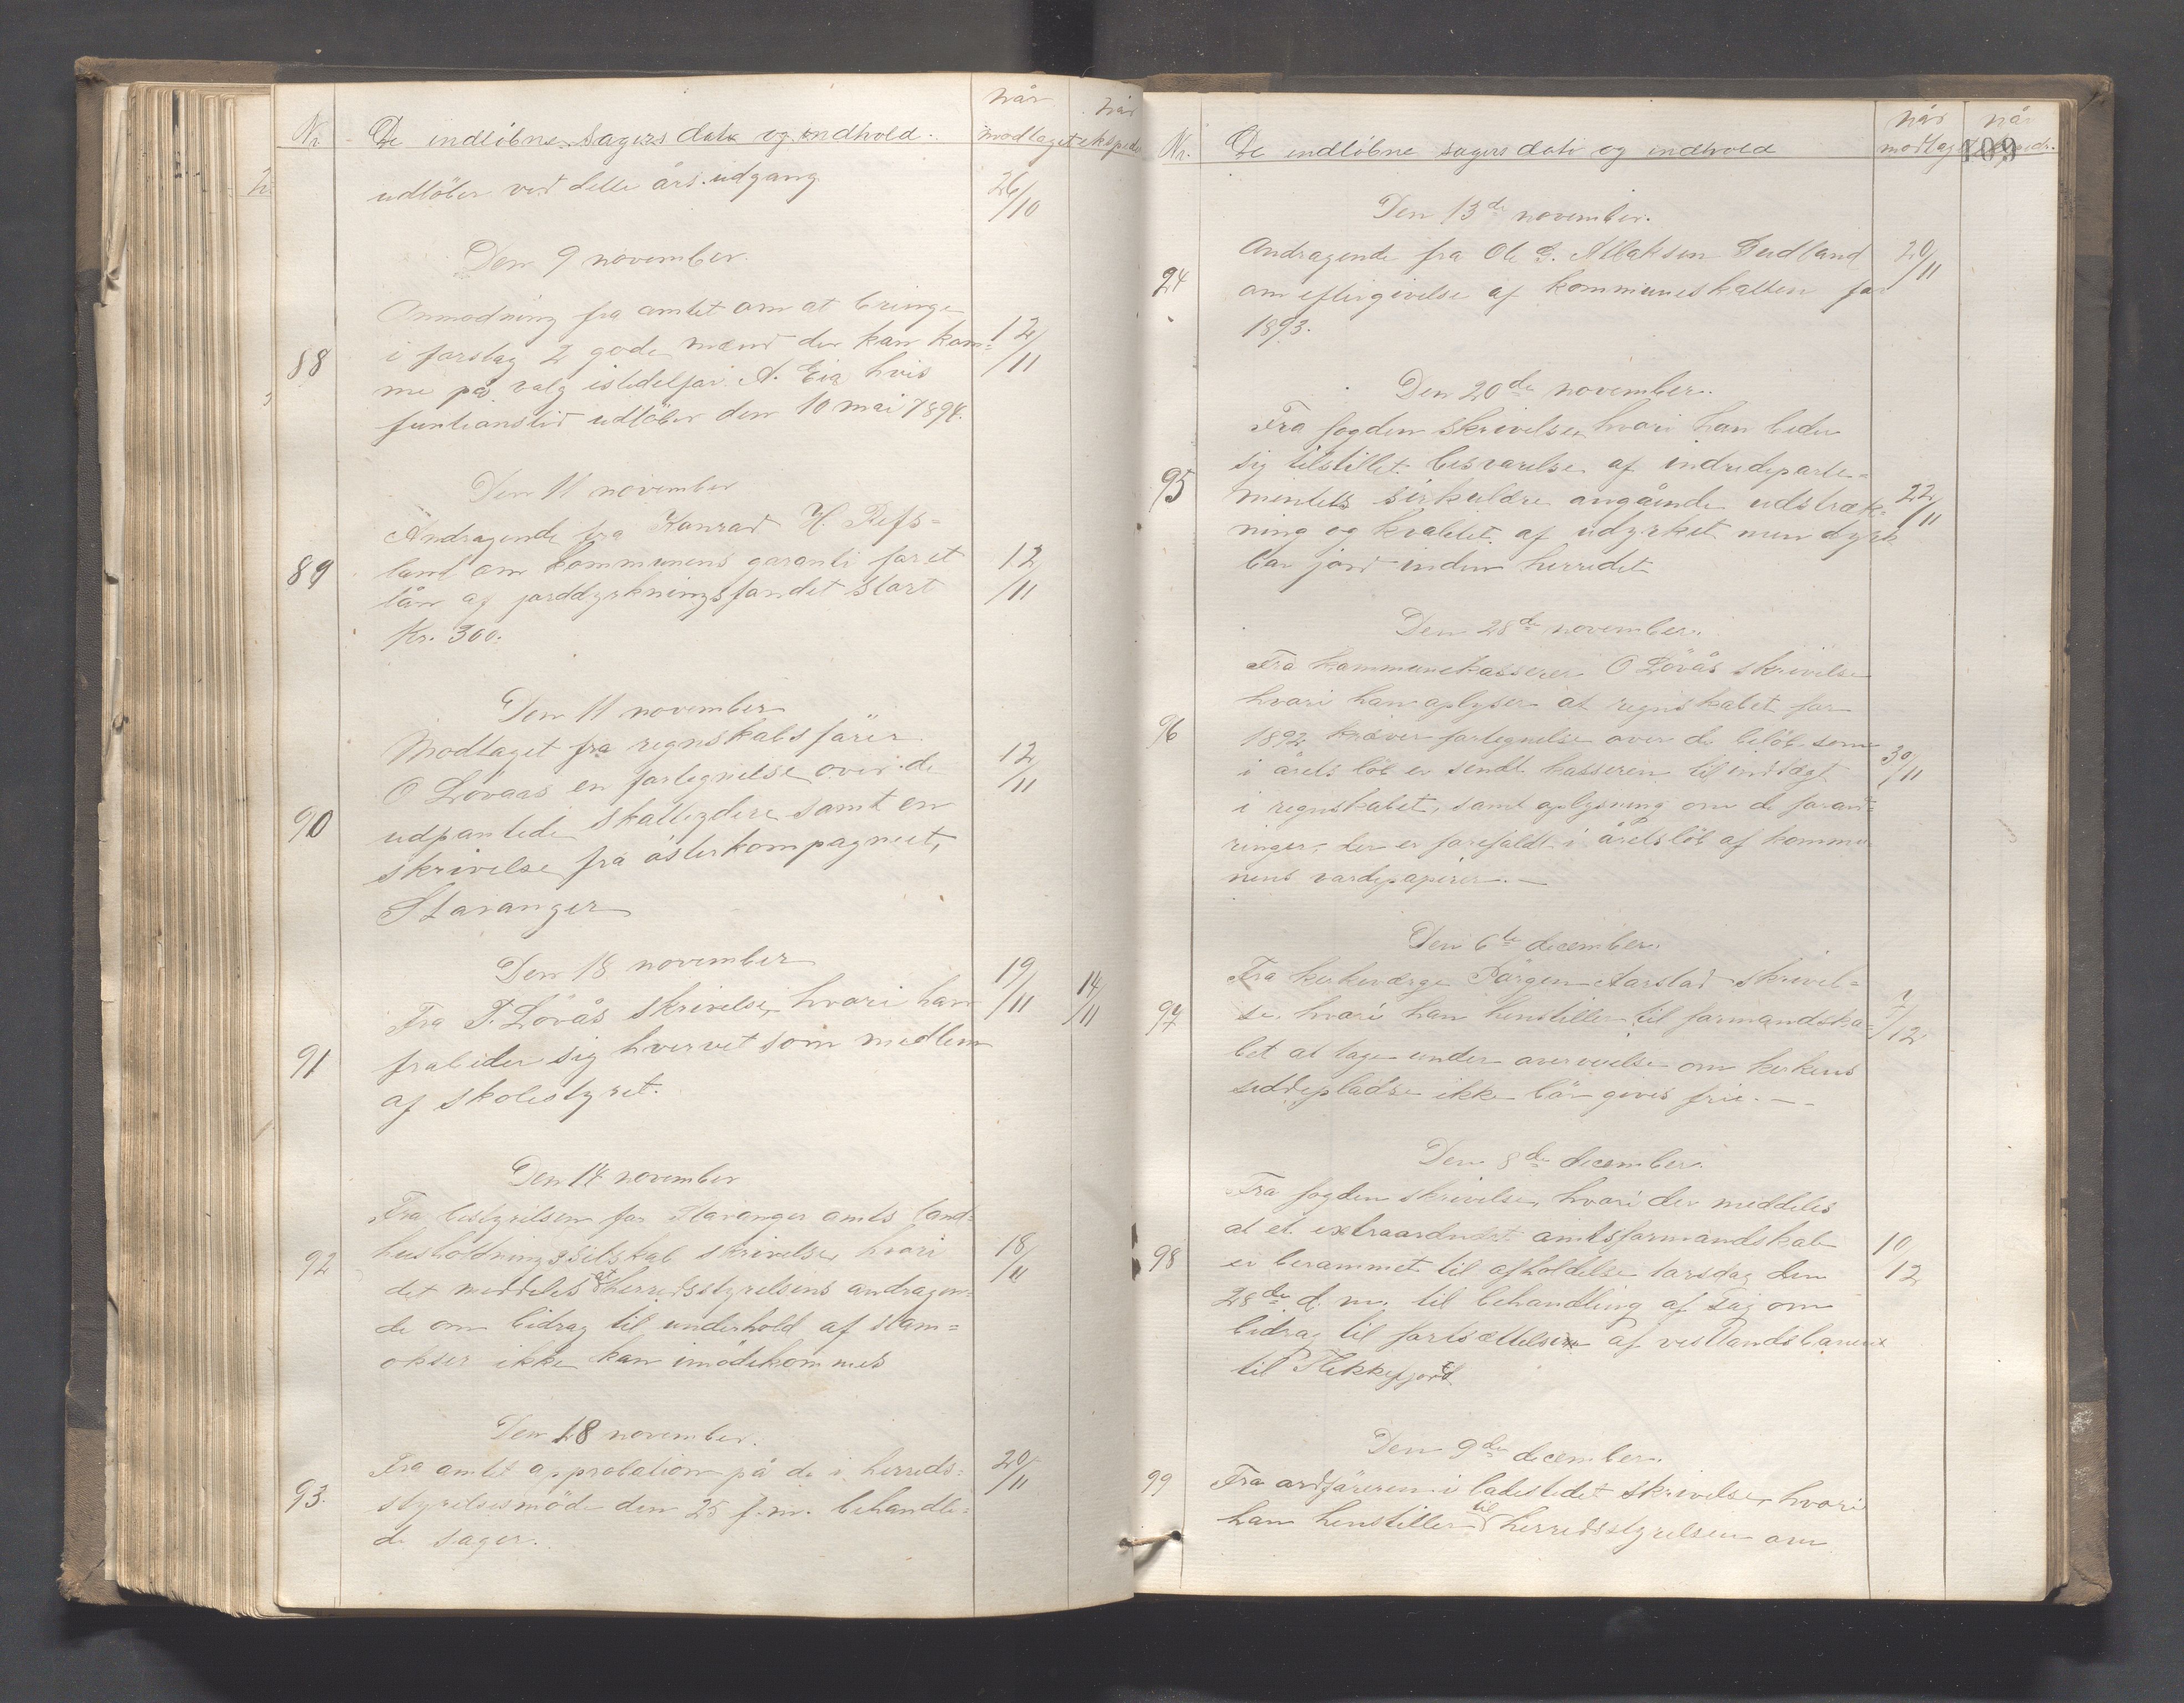 Nr. De indløbne sagers dato og indhold. når modtaget når eksped.
udløber ved dette års udgang 26/10
Den 9 november.
Anmodning fra amtet om at bringe
88 i forslag 2 gode mænd der kan kom= 12/11
me på valg istedetfor A. Eia hvis
funtionstid udløber den 10 mai 1894.
Den 11 november
Andragende fra Konrad H. Refs=
89 land om kommunens garanti for et 12/11
lån af jorddyrkningsfondet stort
Kr. 300.
Den 11 november
Modtaget fra regnskabsfører
O Lövaas en fortegnelse over de 12/11
90 udpantede skatteydere samt en
skrivelse fra østerkompagniet,
Stavanger
Den 18 november 19/11
Fra T. Lövås skrivelse, hvori han 14/11
91 frabeder sig hvervet som medlem
af skolestyret.
Den 14 november
Fra bestyrelsen for Stavanger amts land=
92 husholdningsselskab skrivelse hvori 18/11
det meddeles at herredsstyrelsens andragen=
de om bidrag til underhold af stam=
okser ikke kan imødekommes
Den 18 november.
Fra amtet approbation på de i herreds= 20/11
93. styrelsesmøde den 25 f. m. behandle=
de sager.
109
Nr. De indløbne sagers dato og indhold når modtag når
Den 13de november.
Andragende fra Ole G. Atlaksen Gudland 20/11
94 om eftergivelse af kommuneskatten for
1893.
Den 20de november.
Fra fogden skrivelse, hvori han beder
sig tilstillet besvarelse af indredeparte=
95 mentets sirkulære angående udstræk= 22/11
ning og kvalitet af udyrket men dyrk
bar jord inden herredet
Den 28de november.
Fra kommunekasserer O Lövås skrivelse
hvori han oplyser at regnskabet for
96 1892 kræver fortegnelse over de beløb som 30/11
i årets løb er sendt kassereren til indtægt
i regnskabet, samt oplysning om de foran=
ringer, der er forefaldt i årets løb af kommu
nens værdipapirer. —
Den 6te december.
Fra kirkeværge Børgen Aarstad skrivel=
97 se, hvori han henstiller til formandska= 7/12
bet at tage under overveielse om kirkens
siddepladse ikke bør gives frie. —
Den 8de december.
Fra fogden skrivelse, hvori der meddeles
at et extraordinært amtsformandskab 10/12
98 er berammet til afholdelse torsdag den
28de d. m. til behandling af sag om
bidrag til fortsættelsen af vestlandsbanen
til Flekkefjord
Den 9de december.
99 Fra ordføreren i ladestedet skrivelse, hvori
han henstiller til herredsstyrelsen om